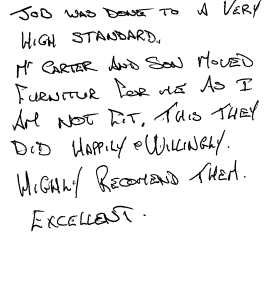 JOB WAS DONE TO A VERY
HIGH STANDARD.
Mr CARTER AND SON MOVED
FURNITUR FOR ME AS I
AM NOT FIT. THIS THEY
DID HAPPILY & WILLINGLY.
HIGHLY RECOMEND THEM.
EXCELLENT.